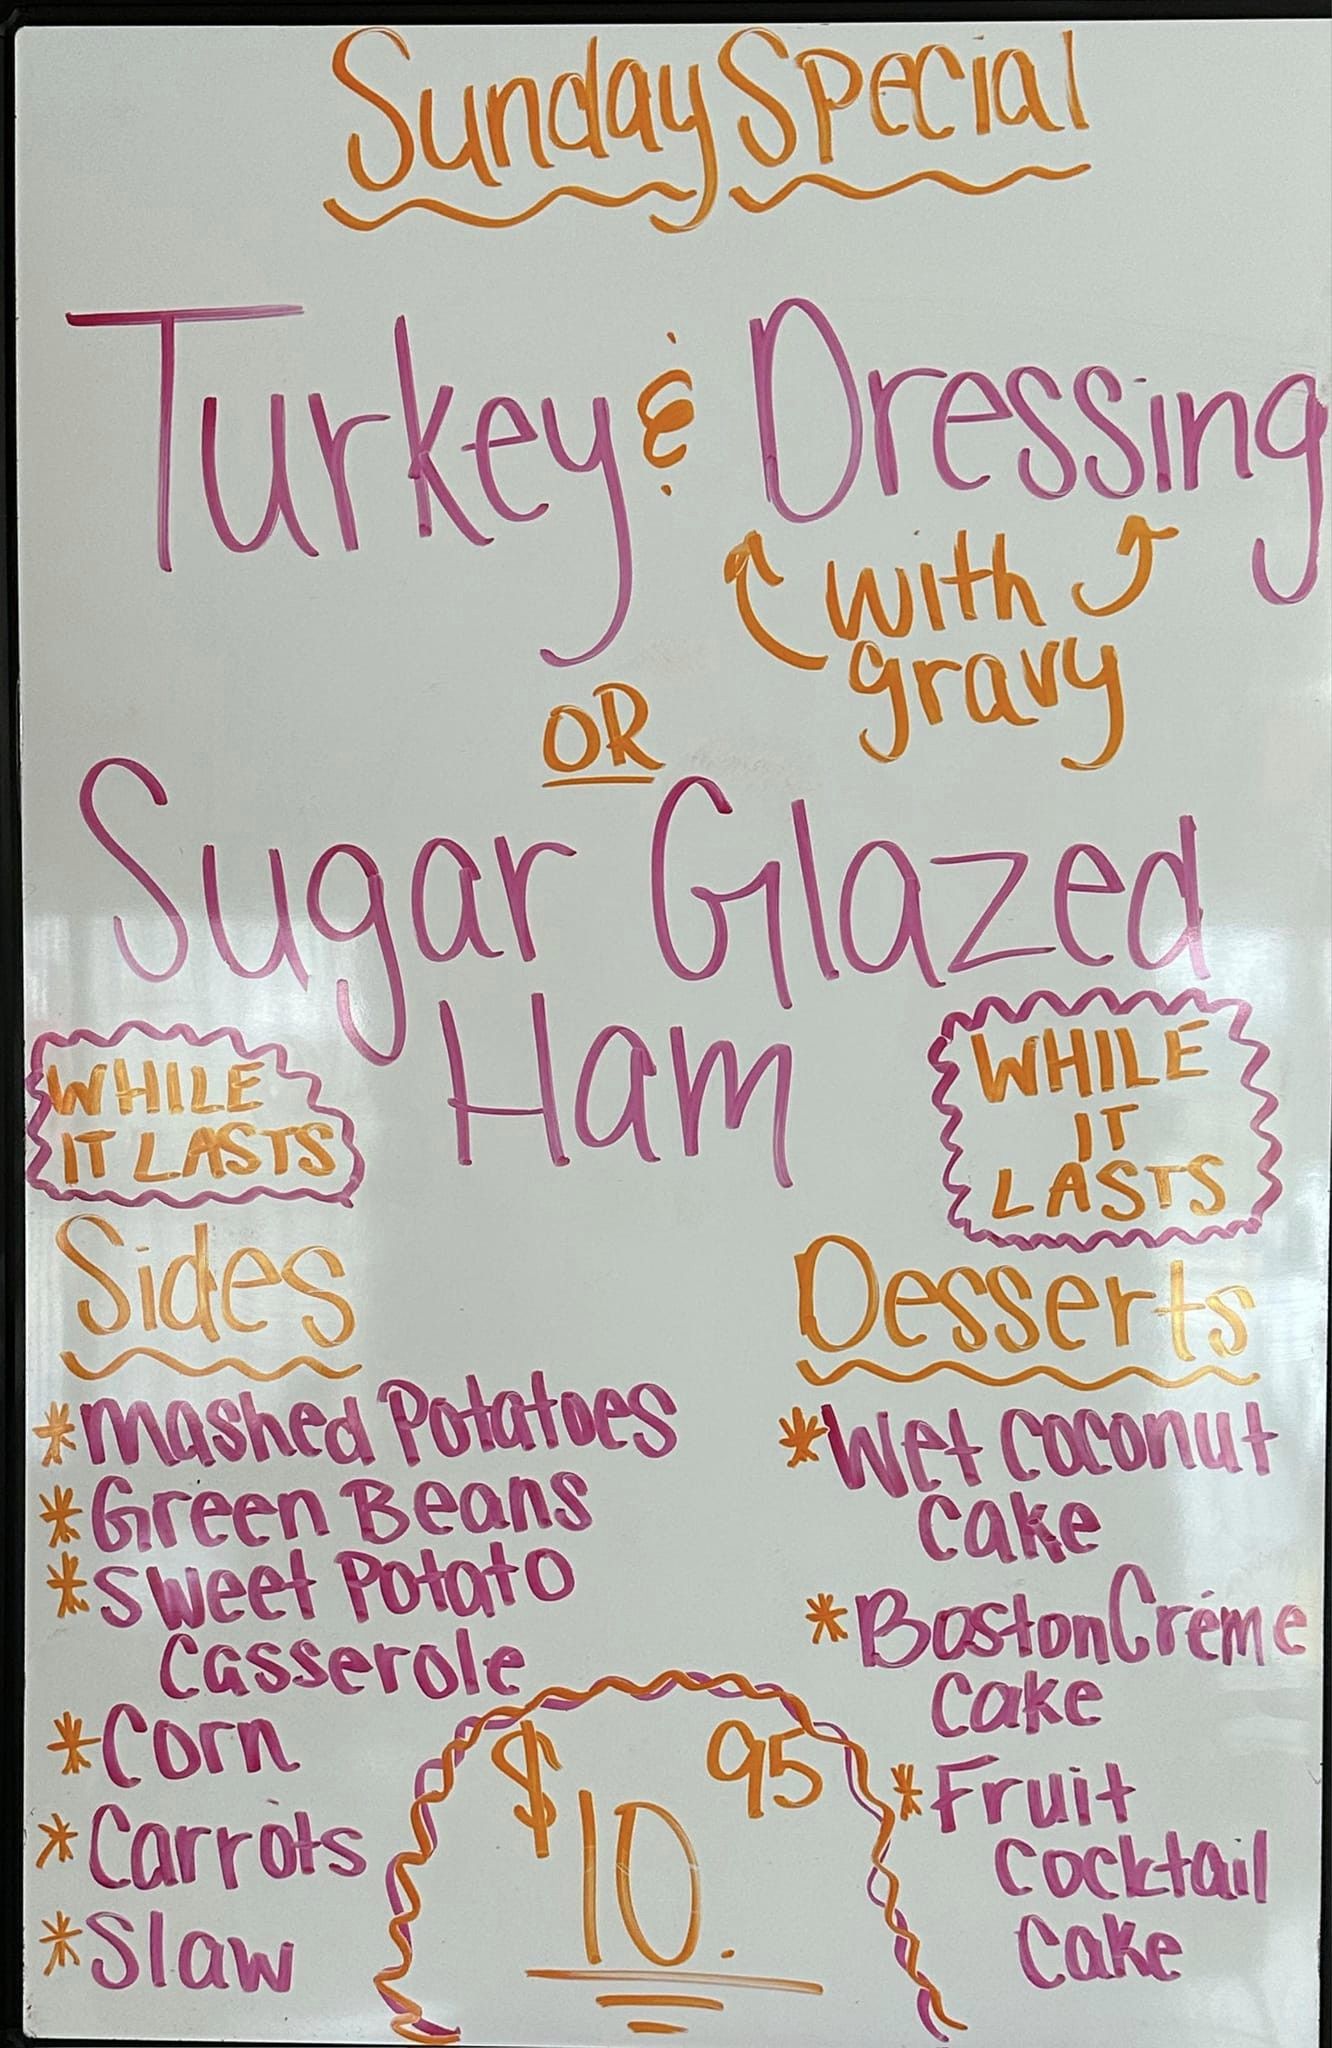 Sunday Special
Turkey & Dressing
with
gravy
OR
Sugar Glazed
Ham
WHILE
IT LASTS
WHILE
IT
LASTS
Sides
*Mashed Potatoes
*Green Beans
*Sweet Potato
Casserole
*Corn
*Carrots
*Slaw
Desserts
*Wet Coconut
Cake
*Boston Créme
Cake
*Fruit
Cocktail
Cake
$10.95